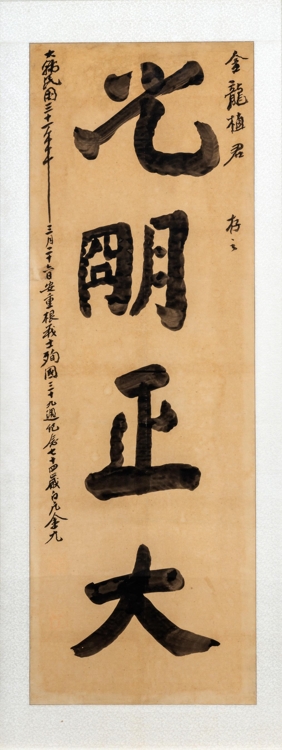 金龍植君 存之
光明正大
大韓民國三十一年三月二十六日安重根義士殉國三十九週紀念七十四歲白凡金九